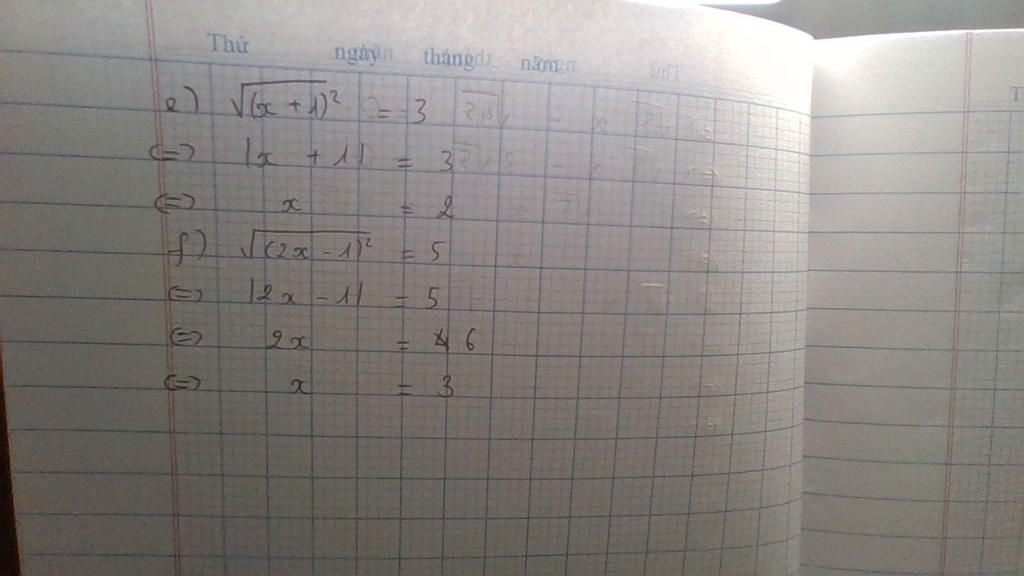 Thứ ngày tháng năm
e) √(x + 1)² = 3
<=> |x + 1| = 3
<=> x = 2
f) √(2x - 1)² = 5
<=> |2x - 1| = 5
<=> 2x = 6
<=> x = 3
T